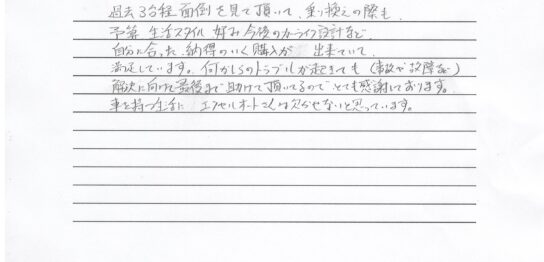 過去3台程面倒を見て頂いて、乗り換えの際も、
予算 生活スタイル 好み 今後のカーライフ設計など、
自分に合った 納得のいく購入が 出来ていて、
満足しています。何かしらのトラブルが起きても（事故や故障など）
解決に向けて最後まで助けて頂いてるので とても感謝しております。
車を持つ生活に エクセルオートさんは欠かせないと思っています。